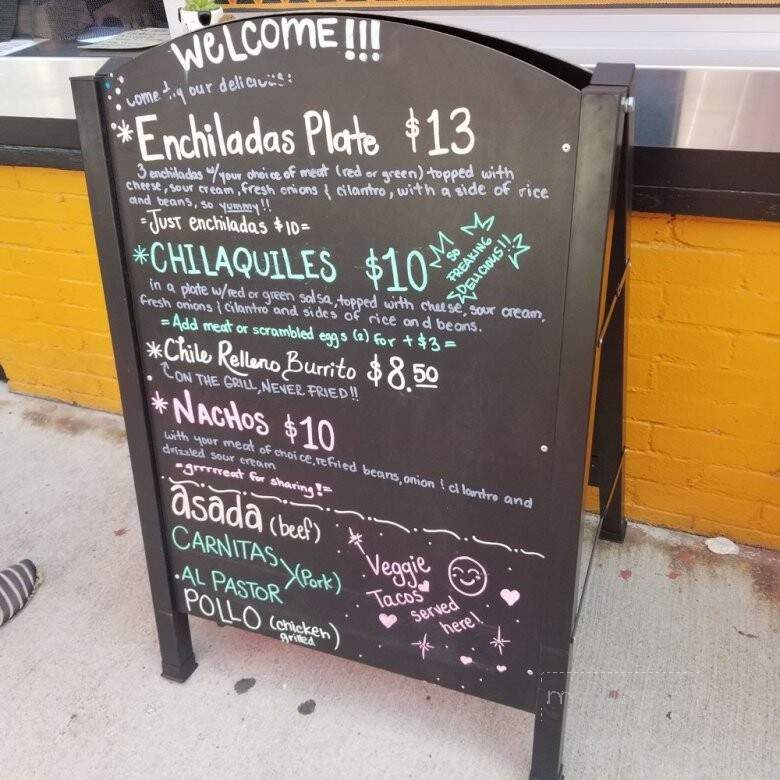 WELCOME!!!
come try our delicious:
*Enchiladas Plate $13
3 enchiladas w/your choice of meat (red or green) topped with
cheese, sour cream, fresh onions & cilantro, with a side of rice
and beans, so yummy!!
=Just enchiladas $10=
*CHILAQUILES $10
SO
FREAKING
DELICIOUS!!
in a plate w/red or green salsa, topped with cheese, sour cream,
fresh onions & cilantro and sides of rice and beans.
=Add meat or scrambled eggs (2) for +$3=
*Chile Relleno Burrito $8.50
ON THE GRILL, NEVER FRIED!!
*NACHOS $10
with your meat of choice, refried beans, onion & cilantro and
drizzled sour cream
=grrrrreat for sharing!=
asada (beef)
CARNITAS
AL PASTOR
(Pork)
POLLO (chicken)
grilled
Veggie
Tacos
served
here!